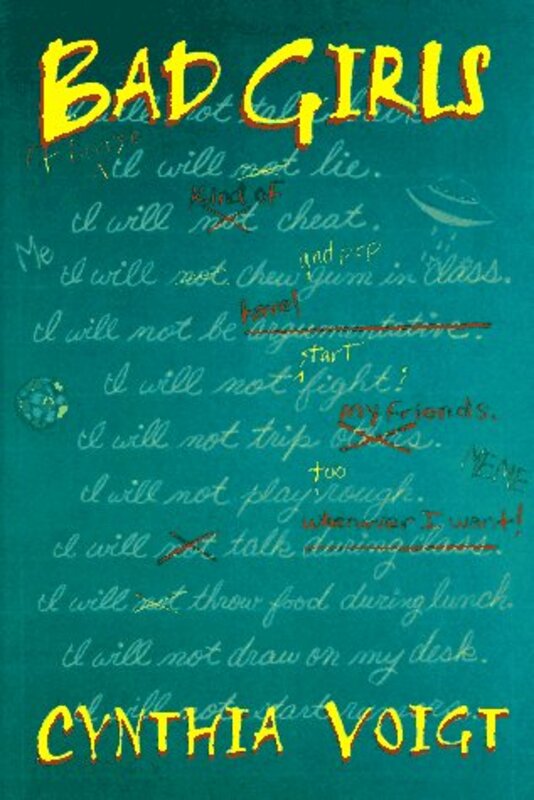 BAD GIRLS
I will not talk back.
of course
I will not lie.
kind of
I will not cheat.
Me
and pop
I will not chew gum in class.
bored
I will not be argumentative.
start
I will not fight!
my friends.
I will not trip others.
ME ME
too
I will not play rough.
whenever I want!
I will not talk during class.
I will not throw food during lunch.
I will not draw on my desk.
I will not start rumors.
CYNTHIA VOIGT